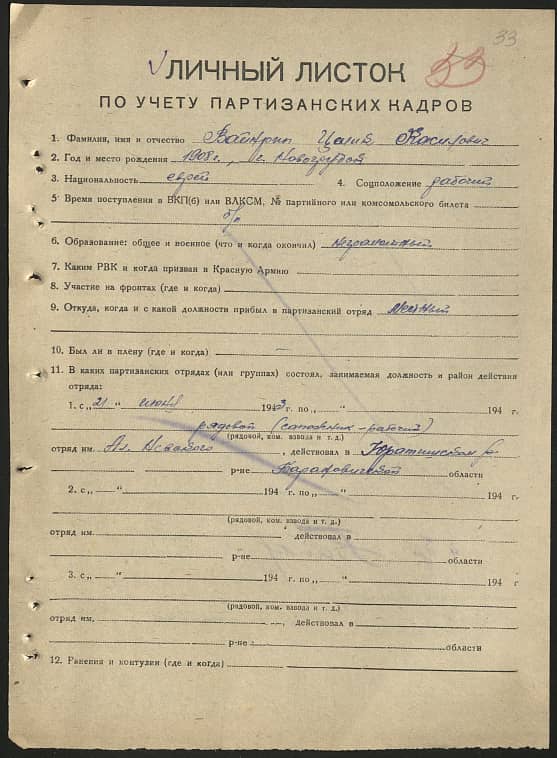 33
ЛИЧНЫЙ ЛИСТОК 33
ПО УЧЕТУ ПАРТИЗАНСКИХ КАДРОВ
1. Фамилия, имя и отчество
2. Год и место рождения 1908 г., г. Новогрудок
3. Национальность еврей 4. Соцположение рабочий
5. Время поступления в ВКП(б) или ВЛКСМ, № партийного или комсомольского билета
б/п
6. Образование: общее и военное (что и когда окончил) неграмотный
7. Каким РВК и когда призван в Красную Армию
8. Участие на фронтах (где и когда)
9. Откуда, когда и с какой должности прибыл в партизанский отряд местный
10. Был ли в плену (где и когда) —
11. В каких партизанских отрядах (или группах) состоял, занимаемая должность и район действия
отряда:
1. с „21 “ июня 1943 г. по „ “ 194 г.
рядовой (сапожник-рабочий)
(рядовой, ком. взвода и т. д.)
отряд им. Ал. Невского, действовал в
р-не Барановичской области
2. с „ “ 194 г. по „ “ 194 г.
(рядовой, ком. взвода и т. д.)
отряд им. действовал в
р-не области
3. с „ “ 194 г. по „ “ 194 г
(рядовой, ком. взвода и т. д.)
отряд им. , действовал в
р-не области
12. Ранения и контузии (где и когда)